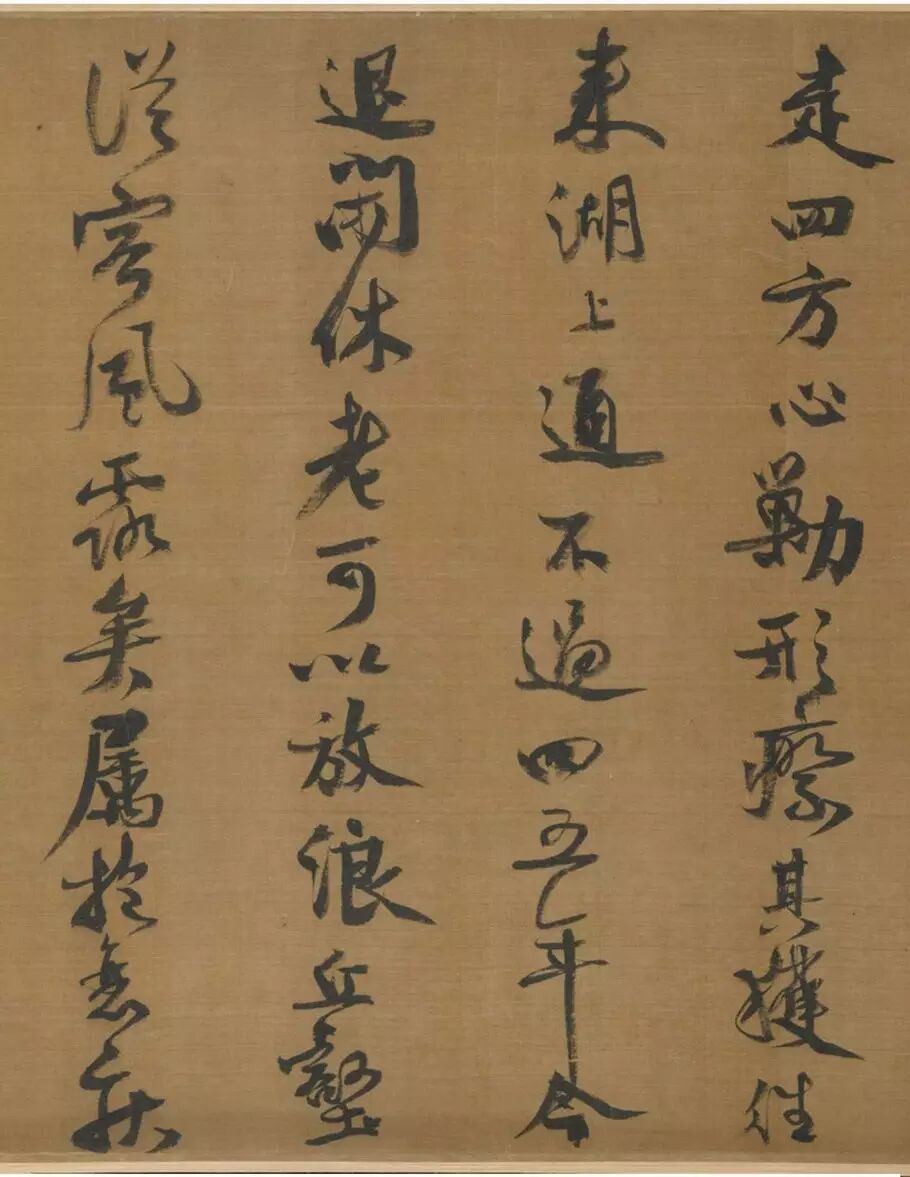 走四方心勤形瘵其獲往
來湖上通不過四五年今
退閒休老可以放浪丘壑
從容風露矣屬於意興